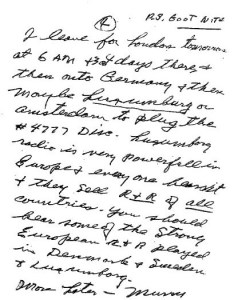 P.S. GOOT NITE
I leave for London tomorrow
at 6 AM + 3 or 4 days there, +
then onto Germany + then
maybe Luxumburg or
Amsterdam to plug the
#4777 Disc. Luxumborg
radio is very powerfell in
Europe + every one hears it
+ they sell R+R of all
countries. You should
hear some of the strong
European R+R played
in Denmark + Sweden
+ Luxumborg.
More later — Murray